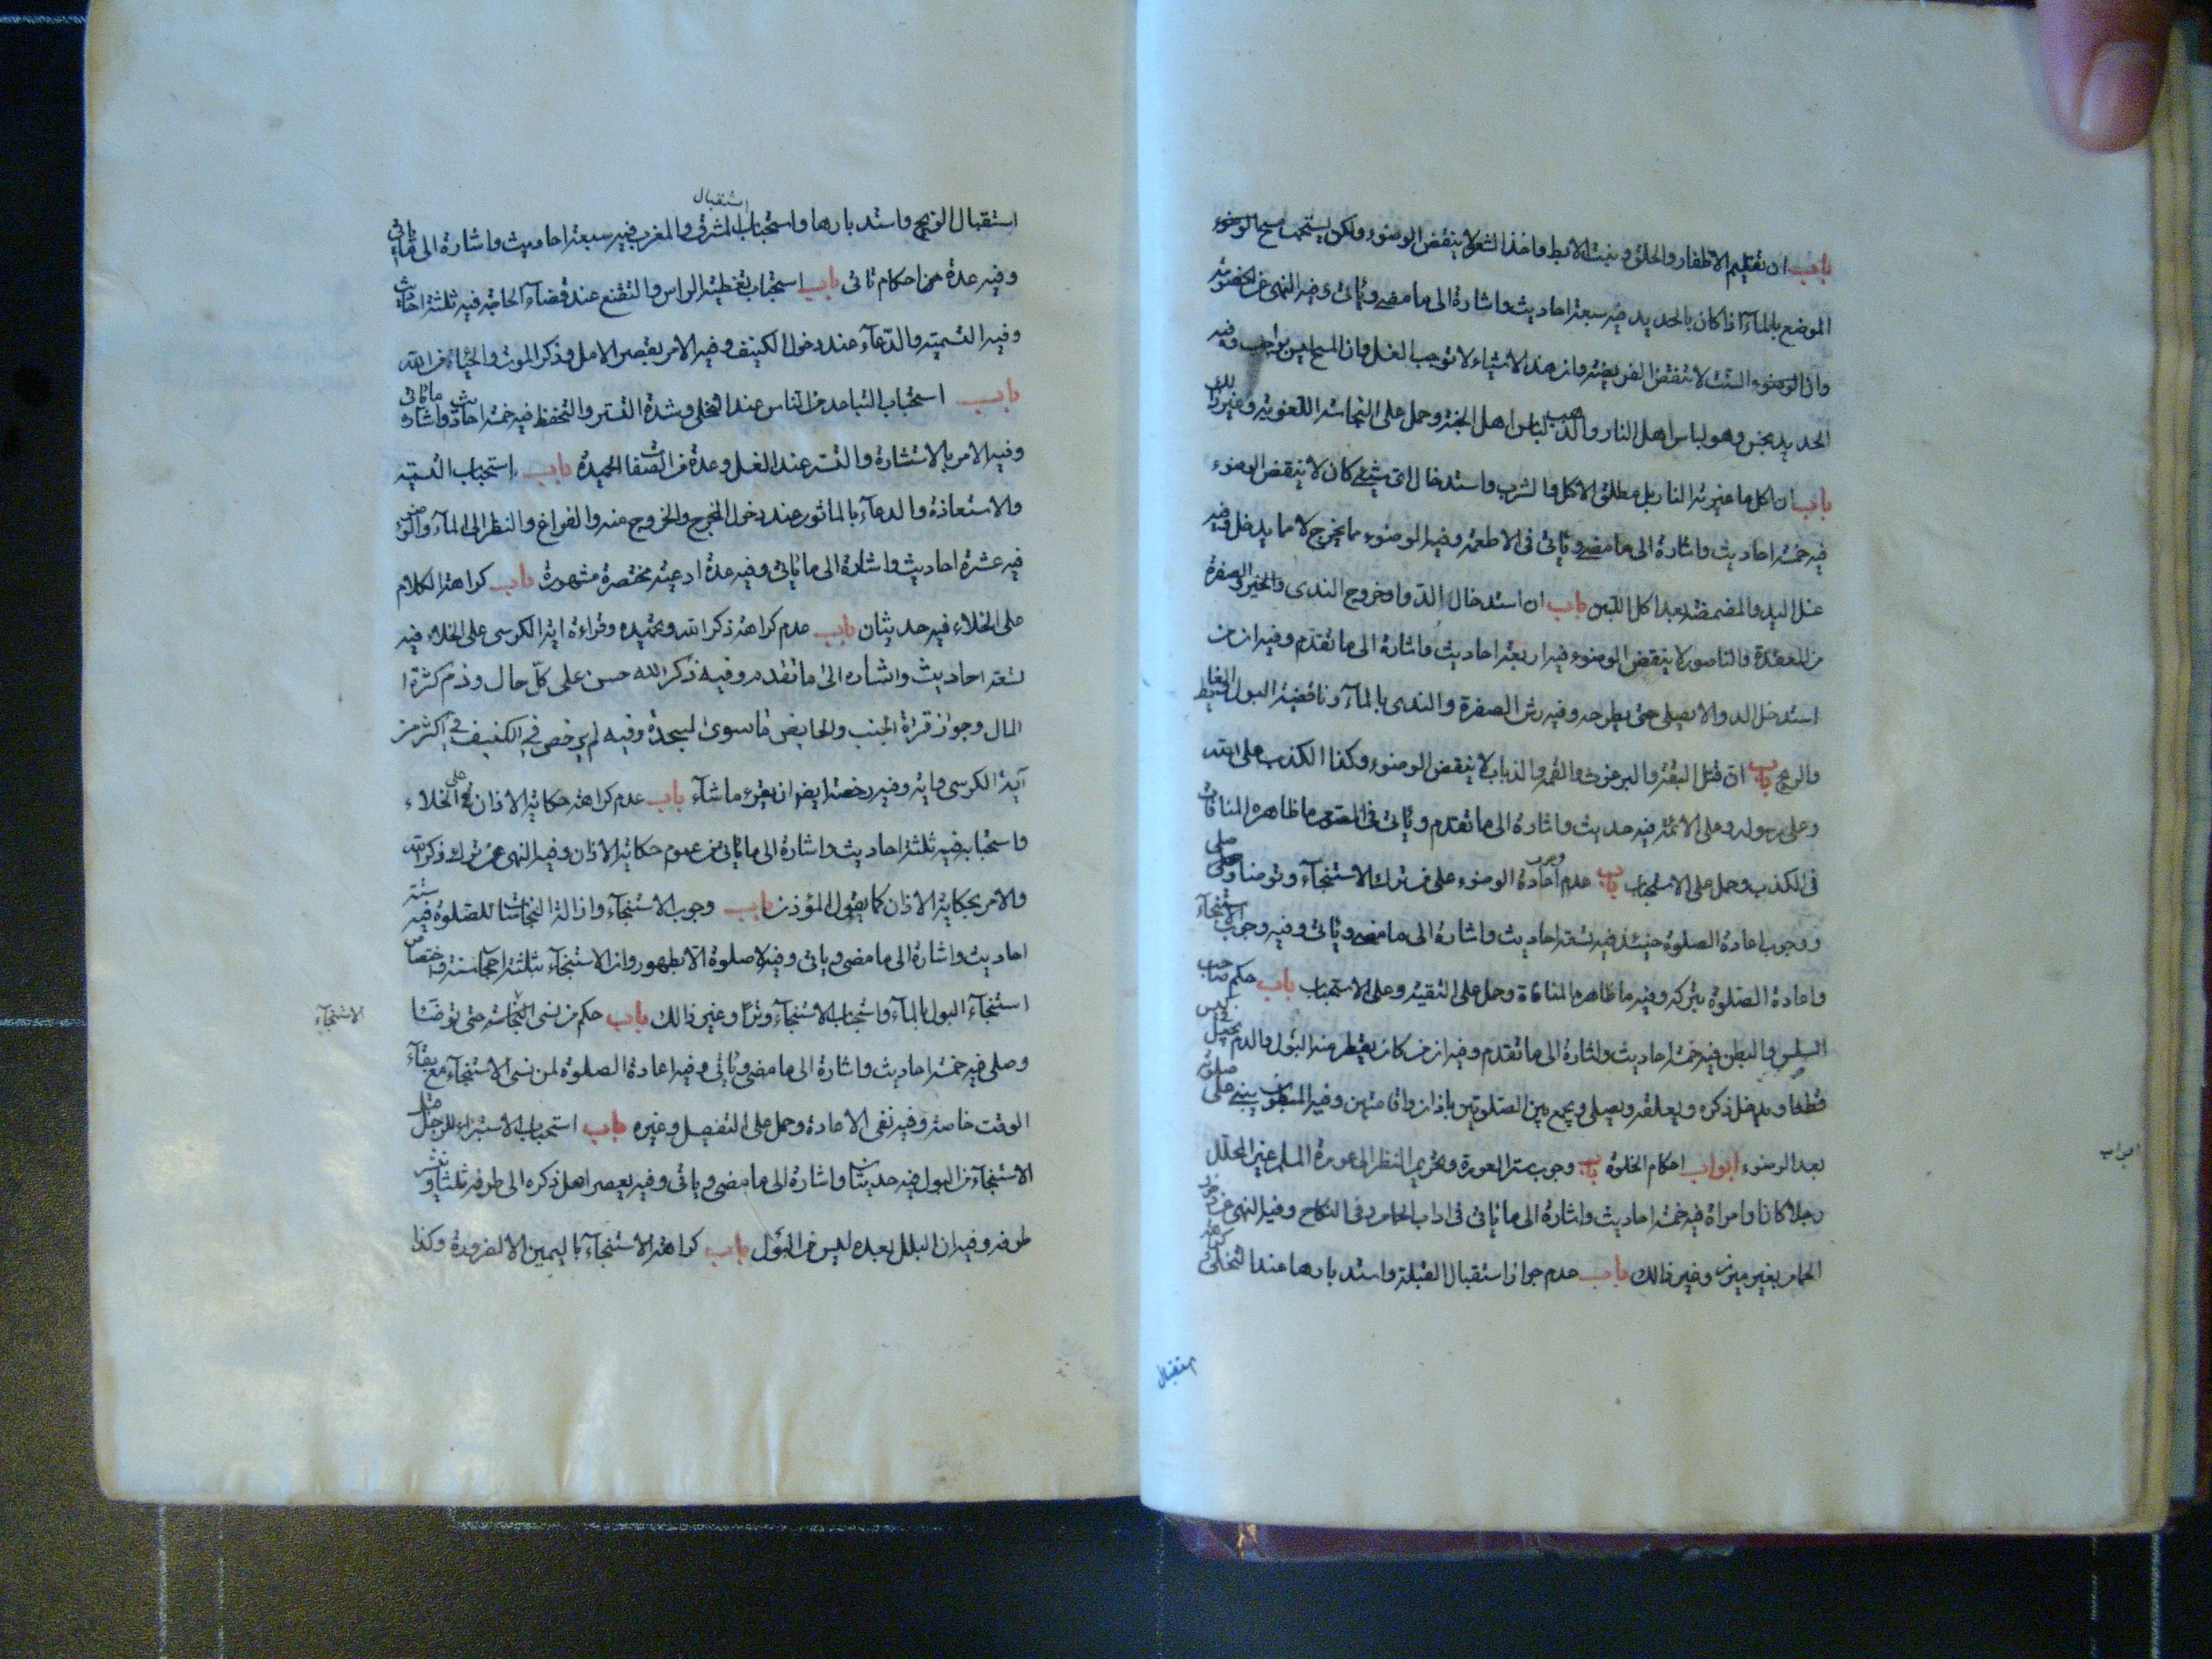 باب ان تقليم الاظفار والحلق ونتف الابط واخذ الشعر لا ينقض الوضوء ولكن يستحب مسح
الموضع بالماء اذا كان بالحديد فيه سبعة احاديث واشارة الى ما مضى وياتى وفيه النهى عن
وان الوضوء لا تنقض الفريضة وان هذه الاشياء لا توجب الغسل وان المسح ليس بواجب وفيه
الحديد نجس وهو لباس اهل النار والذهب لباس اهل الجنة وحمل على النجاسة اللغوية وغير ذلك
باب ان اكل ما غيرته النار بل مطلق الاكل والشرب واستدخال اى شىء كان لا ينقض الوضوء
فيه خمسة احاديث واشارة الى ما مضى وياتى فى الاطعمة وفيه الوضوء مما يخرج لا مما يدخل وفيه
غسل اليد والمضمضة بعد اكل اللبن باب ان استدخال الدوا وخروج الندى والصفرة
من المقعدة والناصور لا ينقض الوضوء فيه اربعة احاديث واشارة الى ما تقدم وفيه ان من
استدخل الدوا لا يصلى حتى يطرحه وفيه رش الصفرة والندى بالماء وناقضية البول والغايط
والريح باب ان قتل البقة والبرغوث والقملة والذباب لا ينقض الوضوء وكذا الكذب على الله
وعلى رسوله وعلى الائمة فيه حديث واشارة الى ما تقدم وياتى فى الصوم ما ظاهره المنافات
فى الكذب وحمل على الاستحباب باب عدم وجوب اعادة الوضوء على من ترك الاستنجآء وتوضا وصلى
ووجوب اعادة الصلوة حينئذ فيه تسعة احاديث واشارة الى ما مضى وياتى وفيه وجوب الاستنجآء
واعادة الصلوة بتركه وفيه ما ظاهره المنافاة وحمل على التقية وعلى الاستحباب باب حكم صاحب
السلس والبطن فيه خمسة احاديث واشارة الى ما تقدم وفيه ان من كان يقطر منه البول والدم يجعل كيس
قطنا ويدخل ذكره ويعلقه ويصلى ويجمع بين الصلوتين باذان واقامتين وفيه المبطون يبنى على صلوته
بعد الوضوء ابواب احكام الخلوة باب وجوب ستر العورة وتحريم النظر الى عورة المسلم غير المحلل
رجلا كان او امراة فيه خمسة احاديث واشارة الى ما ياتى فى اداب الحمام وفى النكاح وفيه النهى عن دخول
الحمام بغير ميزر وغير ذلك باب عدم جواز استقبال القبلة واستدبارها عند التخلى
ابواب
استقبال
استقبال الريح واستدبارها واستحباب استقبال المشرق والمغرب فيه سبعة احاديث واشارة الى ما ياتى
وفيه عدة من احكام تاتى باب استحباب تغطية الراس والتقنع عند قضآء الحاجة فيه ثلثة احاديث
وفيه التسمية والدعآء عند دخول الكنيف وفيه الامر بقصر الامل وذكر الموت والحياء من الله
باب استحباب التباعد من الناس عند التخلى وشدة التستر والتحفظ فيه خمسة احاديث واشارة ما تاتى
وفيه الامر بالاستشارة والتستر عند الغسل وعدة من الصفات الحميدة باب استحباب التسمية
والاستعاذة والدعآء بالماثور عند دخول المخرج والخروج منه والفراغ والنظر الى المآء والوضوء
فيه عشرة احاديث واشارة الى ما ياتى وفيه عدة ادعية مختصرة مشهورة باب كراهة الكلام
على الخلاء فيه حديثان باب عدم كراهة ذكر الله وتحميده وقراءة اية الكرسى على الخلاء فيه
تسعة احاديث واشاره الى ما تقدم وفيه ذكر الله حسن على كل حال وذم كثرة ا
المال وجواز قراة الجنب والحايض ما سوى السجدة وفيه لم يرخص فى الكنيف فى اكثر من
آية الكرسى واية وفيه رخصة ايضا ان يقرء ما شآء باب عدم كراهة حكاية الاذان على الخلاء
واستحبابه فيه ثلثة احاديث واشارة الى ما ياتى من عموم حكاية الاذان وفيه النهى عن ترك ذكر الله
والامر بحكاية الاذان كما يقول المؤذن باب وجوب الاستنجآء وازالة النجاسات للصلوة فيه ستة
احاديث واشارة الى ما مضى وياتى وفيه لا صلوة الا بطهور وان الاستنجآء بثلثة احجار سنة واختصاص
استنجآء البول بالمآء واستحباب الاستنجآء وترا وغير ذالك باب حكم من نسى النجاسة حتى توضا
الاستنجآء
وصلى فيه خمسة احاديث واشارة الى ما مضى وياتى وفيه اعادة الصلوة لمن نسى الاستنجآء مع بقآء
الوقت خاصة وفيه نفى الاعادة وحمل على التفصيل وغيره باب استحباب الاستبراء للرجل قبل
الاستنجآء من البول فيه حديثان واشارة الى ما مضى وياتى وفيه يعصر اصل ذكره الى طرفه ثلثا وينتر
طرفه وفيه ان البلل بعده ليس من البول باب كراهة الاستنجآء باليمين الا لضرورة وكذا